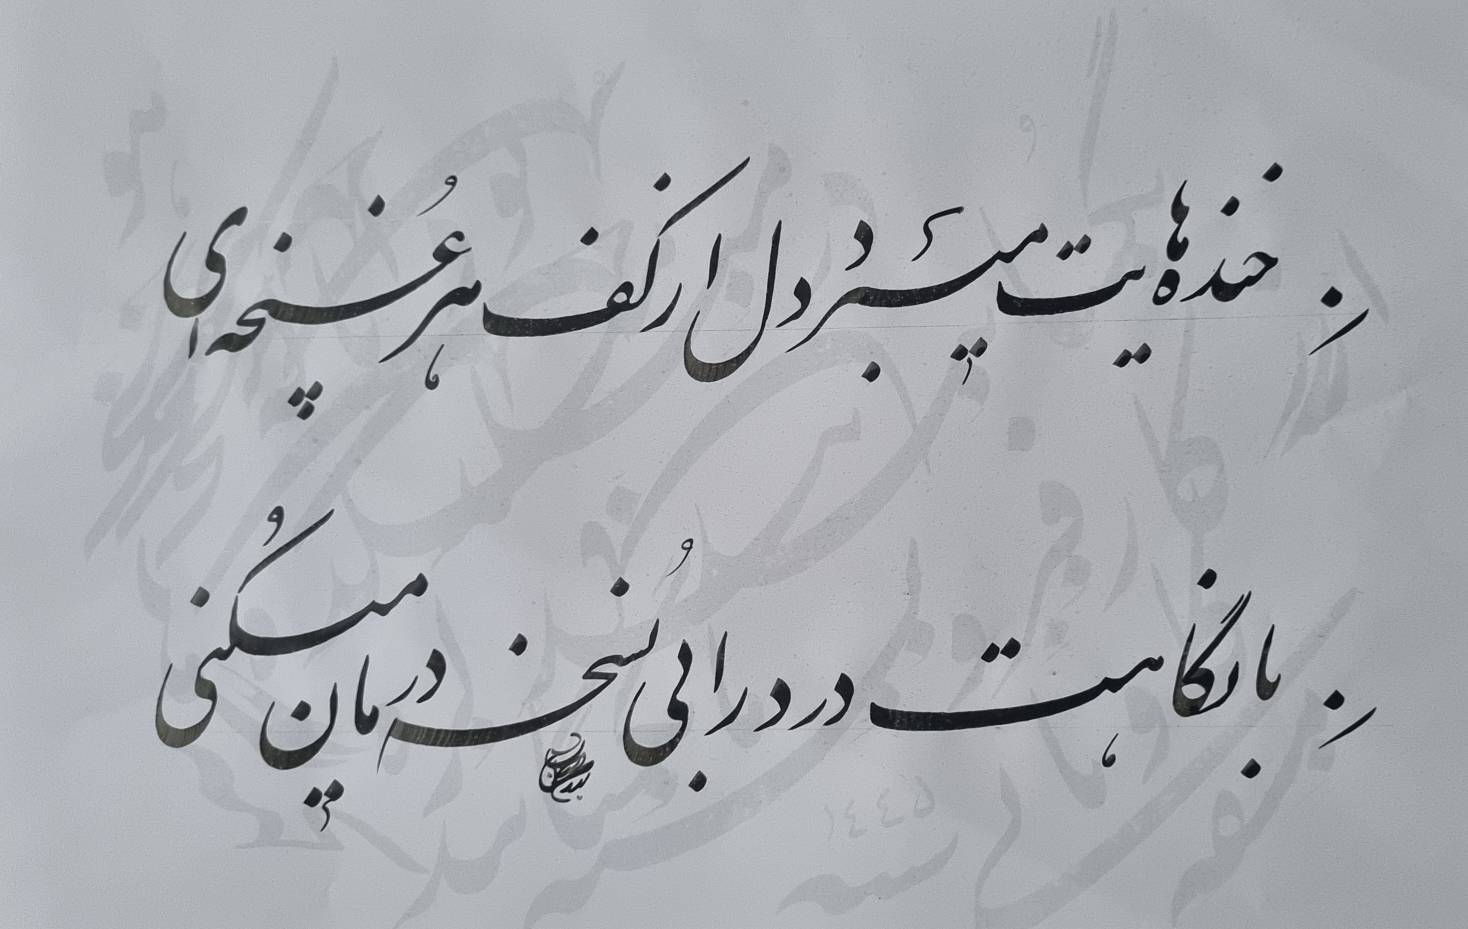 خنده‌هایت میبرد دل از کف هر غنچه‌ای
با نگاهت درد را بی نسخه درمان میکنی